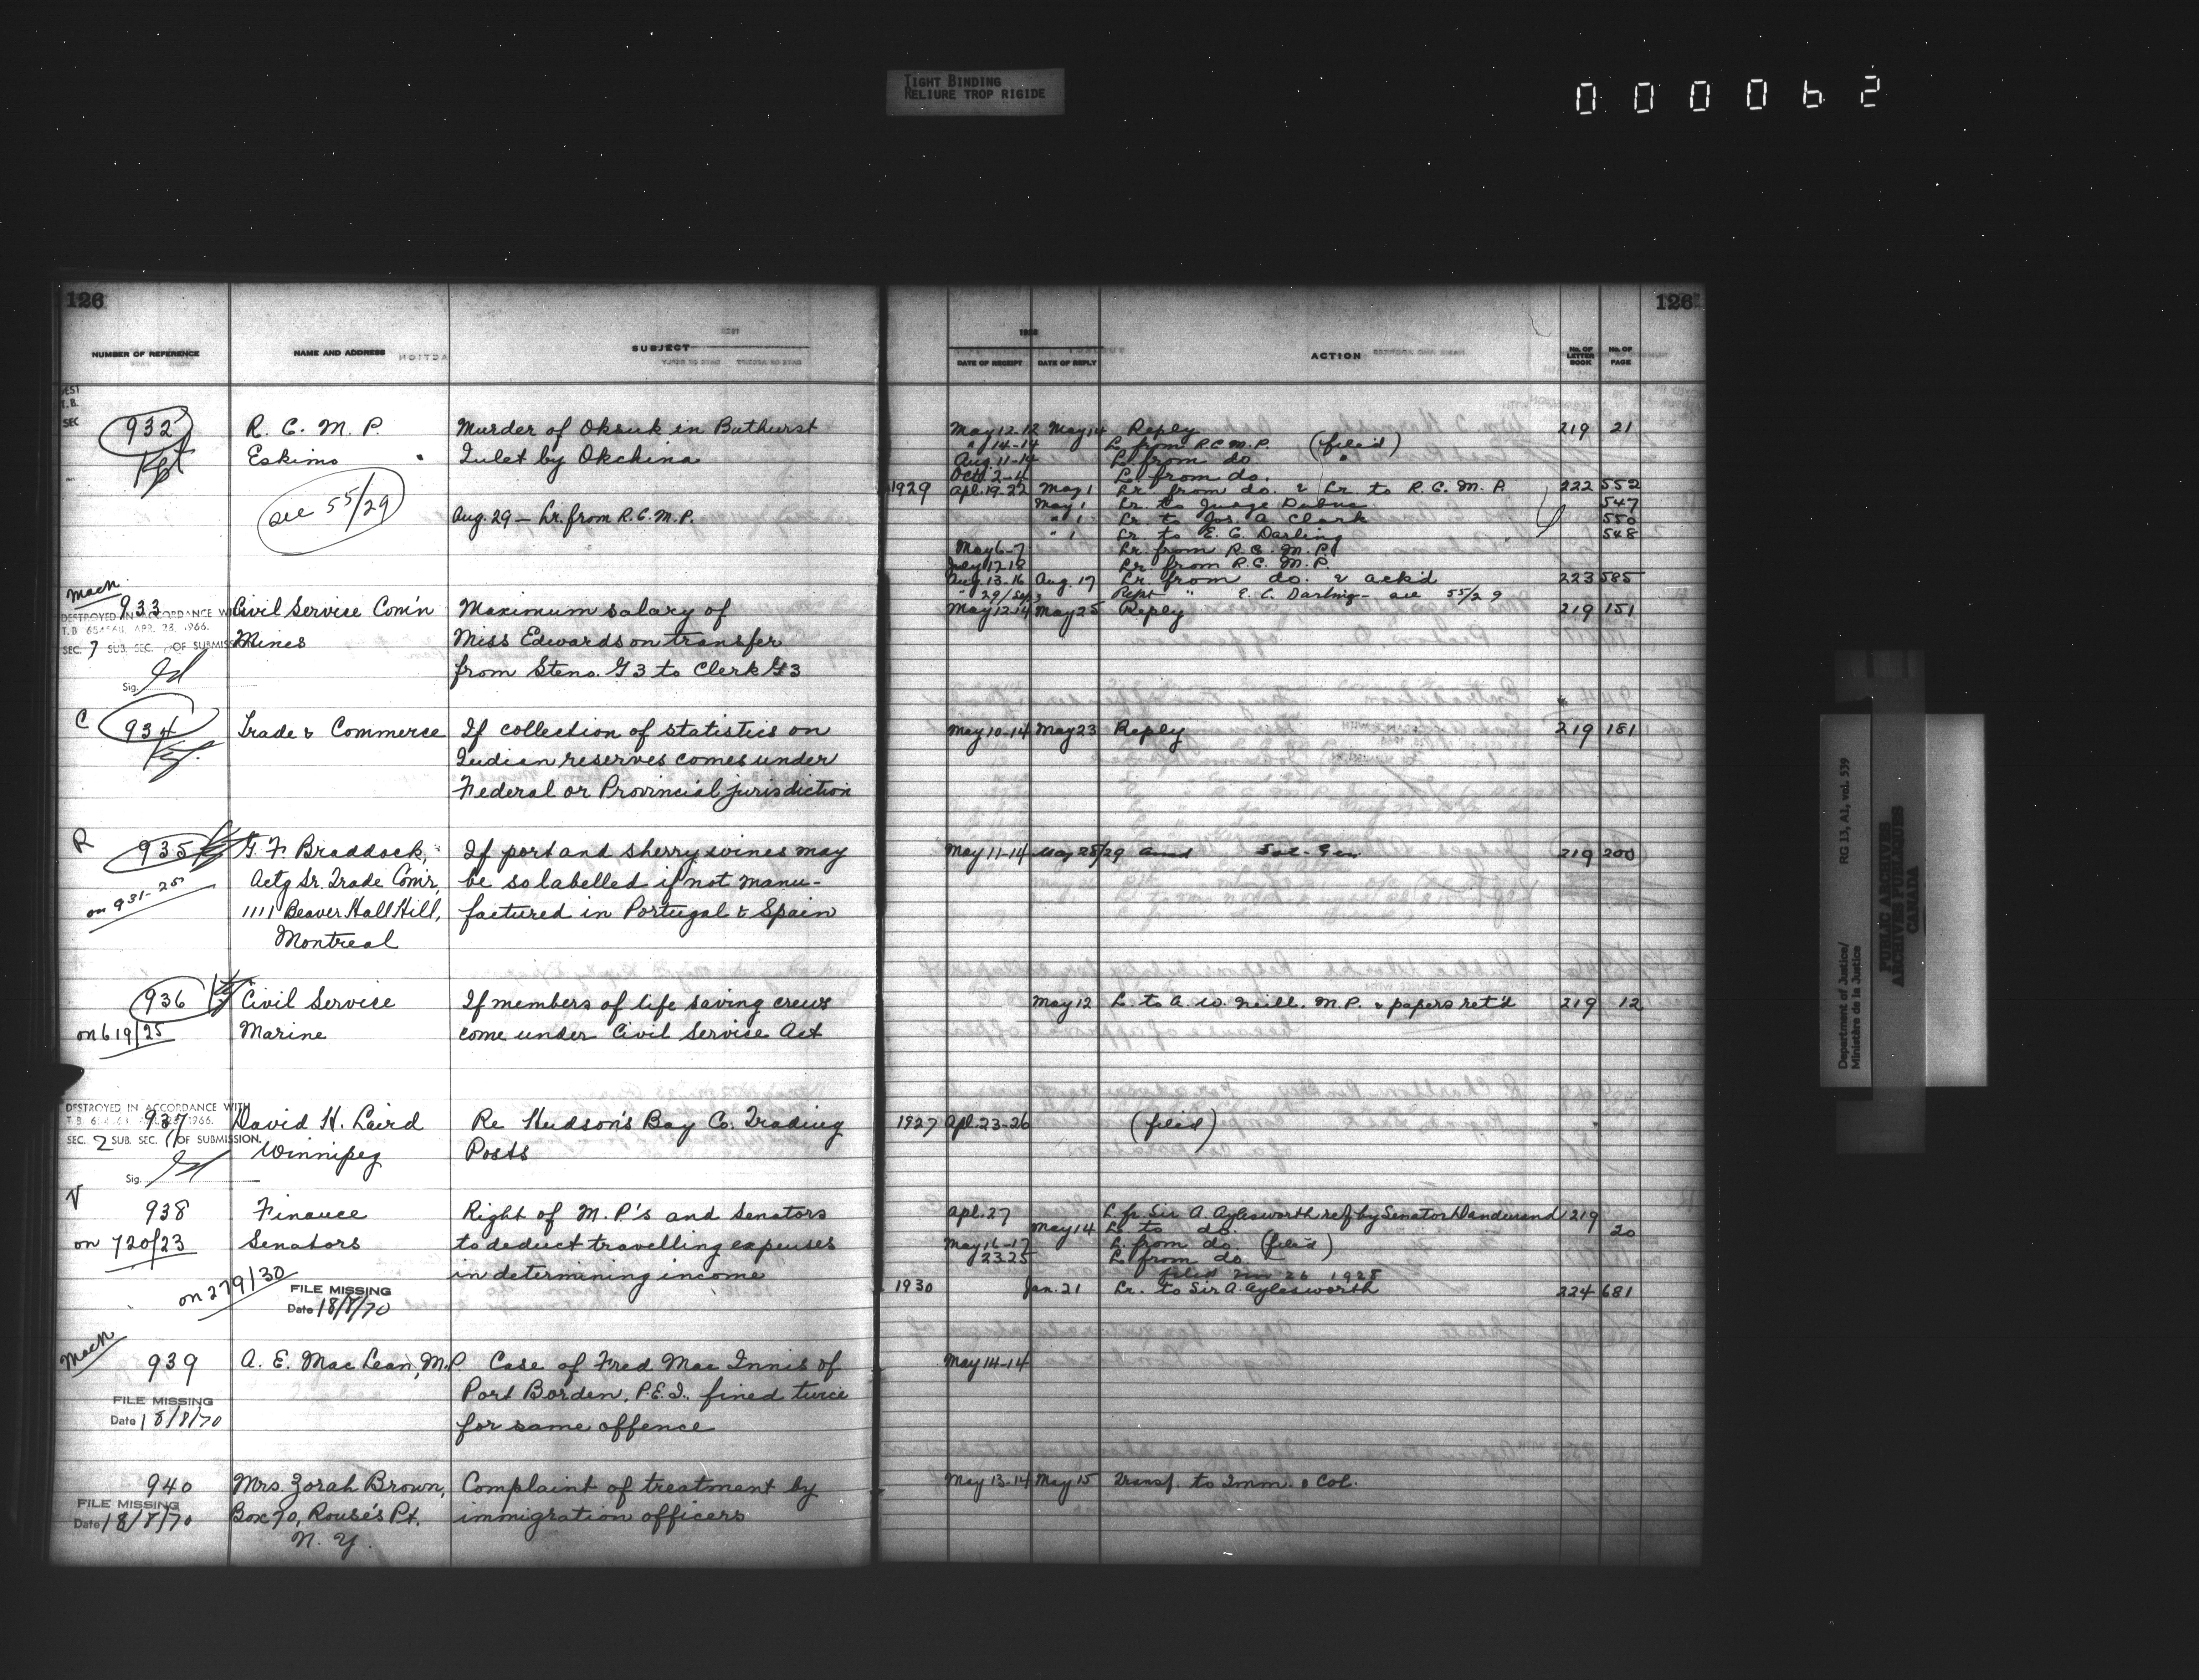 TIGHT BINDING
RELIURE TROP RIGIDE
000062
126
126
1928
NUMBER OF REFERENCE NAME AND ADDRESS SUBJECT DATE OF RECEIPT DATE OF REPLY ACTION No. OF LETTER BOOK No. OF PAGE
932 R. C. M. P. Murder of Oksuk in Bathurst May 12-12 May 14 Reply 219 21
" 14-14 L. from R.C.M.P. (filed)
Eskimo Inlet by Okchina Aug. 11-14 L. from do "
Oct. 2-4 L. from do.
1929 Apl. 19-22 May 1 Lr. from do. & Lr. to R. C. M. P. 222 552
see 55/29 May 1 Lr. to Judge Dubuc 547
Aug. 29 - Lr. from R.C.M.P. " 1 Lr. to Jos. A. Clark 550
" 1 Lr. to E. C. Darling 548
May 6-7 Lr. from R. C. M. P.
July 17-18 Lr. from R.C. M. P.
Aug. 13-16 Aug. 17 Lr. from do. & ack'd 223 585
" 29/Sep 3 Rept " E. C. Darling - see 55/29
933 Civil Service Com'n Maximum salary of May 12-14 May 25 Reply 219 151
DESTROYED IN ACCORDANCE WITH
T.B. APR. 23, 1966.
SEC. 7 SUB. SEC. OF SUBMISSION
Mines Miss Edwards on transfer
from Steno. G3 to Clerk G3
Sig.
C 934 Trade & Commerce If collection of statistics on May 10-14 May 23 Reply 219 181
Indian reserves comes under
Federal or Provincial jurisdiction
R 935 G. F. Braddock, If port and sherry wines may May 11-14 May 28/29 Sol-Gen 219 200
on 931-25 Actg Sr. Trade Com'r, be so labelled if not manu-
1111 Beaver Hall Hill, factured in Portugal & Spain
Montreal
936 Civil Service If members of life saving crews May 12 L. to A. W. Neill. M.P. & papers ret'd 219 12
on 619/25 Marine come under Civil Service Act
DESTROYED IN ACCORDANCE WITH
937 David H. Laird Re Hudson's Bay Co. Trading 1927 Apl. 23-26 (filed)
T.B. 1966.
SEC. 2 SUB. SEC. OF SUBMISSION.
Winnipeg Posts
Sig.
V 938 Finance Right of M.P.'s and Senators Apl. 27 L. fr Sir A. Aylesworth ref by Senator Dandurand 219
May 14 L. to do. 20
on 720/23 Senators to deduct travelling expenses May 16-17 L. from do (filed)
23 25 L. from do
on 279/30 in determining income filed 26 1928
FILE MISSING 1930 Jan. 21 Lr. to Sir A. Aylesworth 224 681
Date 18/8/70
939 A. E. MacLean, M.P. Case of Fred Mac Innis of May 14-14
Port Borden, P.E.I. fined twice
FILE MISSING
Date 18/8/70
for same offence
940 Mrs. Zorah Brown, Complaint of treatment by May 13-14 May 15 Transf. to Imm. & Col.
FILE MISSING
Date 18/8/70
Box 70, Rouse's Pt. immigration officers
N. Y.
Department of Justice/
Ministère de la Justice
RG 13, A1, vol. 539
PUBLIC ARCHIVES
ARCHIVES PUBLIQUES
CANADA